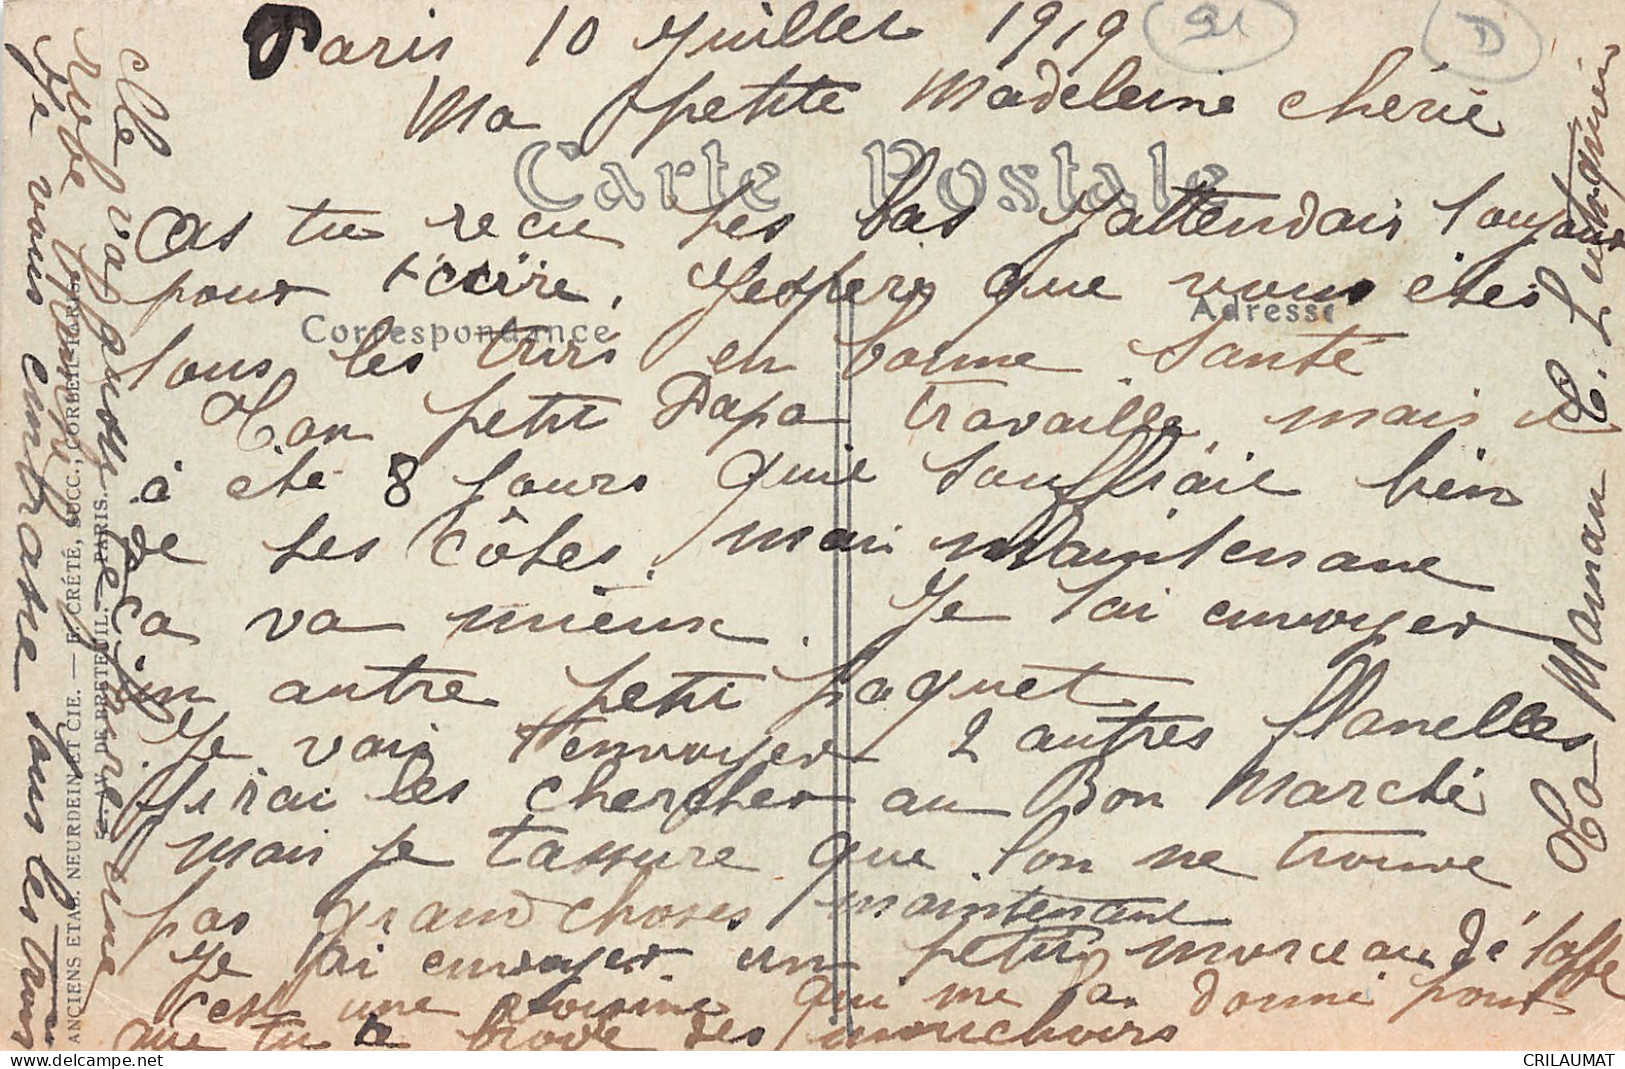 Paris 10 Juillet 1919
Ma petite Madeleine chérie
Carte Postale
As tu recu tes bas Jattendais toujours
pour técrire. Jespere que vous étes
Correspondance
Adresse
tous les trois en bonne Santé
Ton petit Papa travaille, mais il
à été 8 Jours quil souffraie bien
de ses côtes. mais maintenant
ça va mieux. Je tai envoyer
un autre petit paquet
Je vais tenvoyer 2 autres flanelles
Jirai les chercher au Bon Marché
mais je tassure que lon ne trouve
pas grand choses maintenant
Je tai envoyer un petit morceau dé toffe
c'est une voisine qui me la donné pour
que tu brode des mouchoirs
elle va
Je vous embrasse tous les trois
Ta Maman
ANCIENS ETAB. NEURDEIN ET CIE. — E. CRÉTÉ, SUCC., CORBEIL-PARIS.
52, AV. DE BRETEUIL. PARIS.
91
D
www.delcampe.net
CRILAUMAT